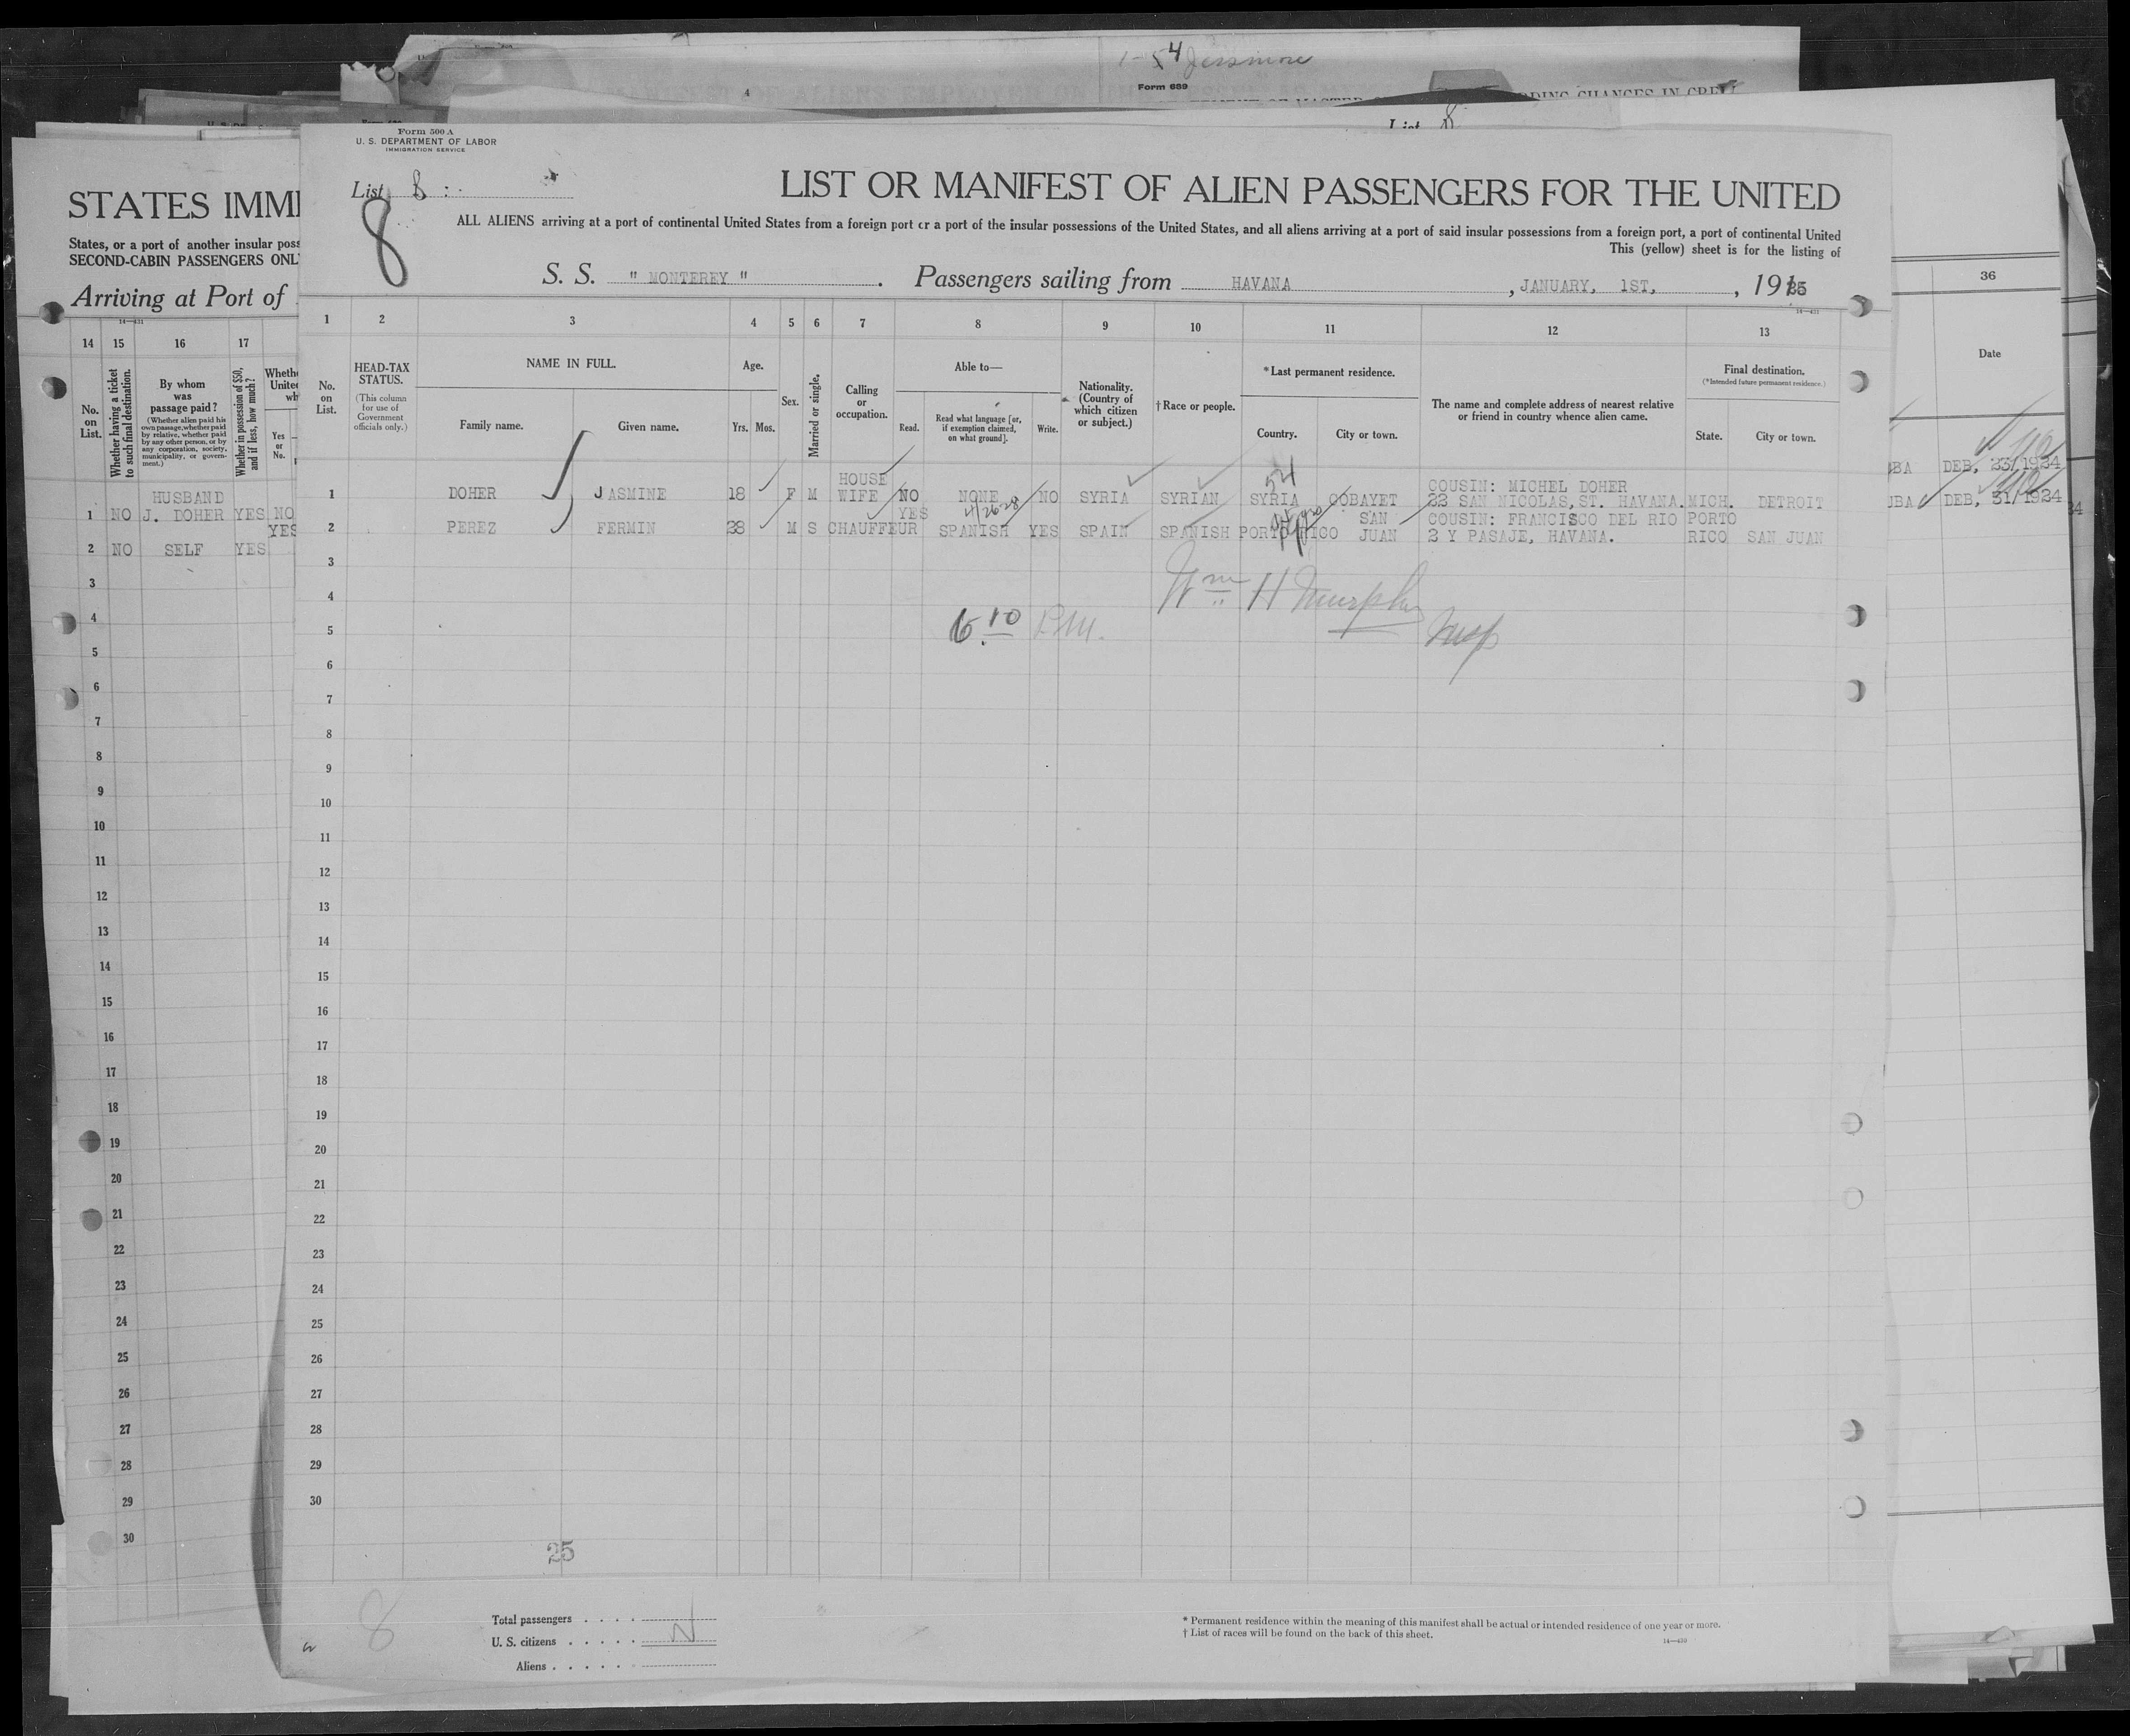 1-54 Jessmore
Form 689
4
List 8
Form 500 A
U. S. DEPARTMENT OF LABOR
IMMIGRATION SERVICE
List 8
8
LIST OR MANIFEST OF ALIEN PASSENGERS FOR THE UNITED
ALL ALIENS arriving at a port of continental United States from a foreign port or a port of the insular possessions of the United States, and all aliens arriving at a port of said insular possessions from a foreign port, a port of continental United
This (yellow) sheet is for the listing of
S. S. " MONTEREY " . Passengers sailing from HAVANA , JANUARY, 1ST, , 1925
14—431
1 2 3 4 5 6 7 8 9 10 11 12 13
No. on List.
HEAD-TAX STATUS.
(This column for use of Government officials only.)
NAME IN FULL.
Family name. Given name.
Age.
Yrs. Mos.
Sex.
Married or single.
Calling or occupation.
Able to—
Read. Read what language [or, if exemption claimed, on what ground]. Write.
Nationality. (Country of which citizen or subject.)
†Race or people.
*Last permanent residence.
Country. City or town.
The name and complete address of nearest relative or friend in country whence alien came.
Final destination.
(*Intended future permanent residence.)
State. City or town.
HOUSE 54 COUSIN: MICHEL DOHER
1 DOHER JASMINE 18 F M WIFE NO NONE NO SYRIA SYRIAN SYRIA COBAYET 22 SAN NICOLAS,ST. HAVANA. MICH. DETROIT
YES 4/26-28 SAN COUSIN: FRANCISCO DEL RIO PORTO
2 PEREZ FERMIN 28 M S CHAUFFEUR SPANISH YES SPAIN SPANISH PORTO RICO JUAN 2 Y PASAJE, HAVANA. RICO SAN JUAN
3
4
Wm H Murphy
5
6.10 P.M.
Insp
6
7
8
9
10
11
12
13
14
15
16
17
18
19
20
21
22
23
24
25
26
27
28
29
30
25
8
Total passengers
U. S. citizens
Aliens
* Permanent residence within the meaning of this manifest shall be actual or intended residence of one year or more.
† List of races will be found on the back of this sheet.
14—430
STATES IMMI
States, or a port of another insular poss
SECOND-CABIN PASSENGERS ONL
Arriving at Port of
14—431
14 15 16 17
No. on List.
Whether having a ticket to such final destination.
By whom was passage paid?
(Whether alien paid his own passage, whether paid by relative, whether paid by any other person, or by any corporation, society, municipality, or government.)
Whether in possession of $50, and if less, how much?
Yes or No.
HUSBAND
1 NO J. DOHER YES NO
YES
2 NO SELF YES
3
4
5
6
7
8
9
10
11
12
13
14
15
16
17
18
19
20
21
22
23
24
25
26
27
28
29
30
36
Date
BA DEB, 23/1924
UBA DEB, 31/1924